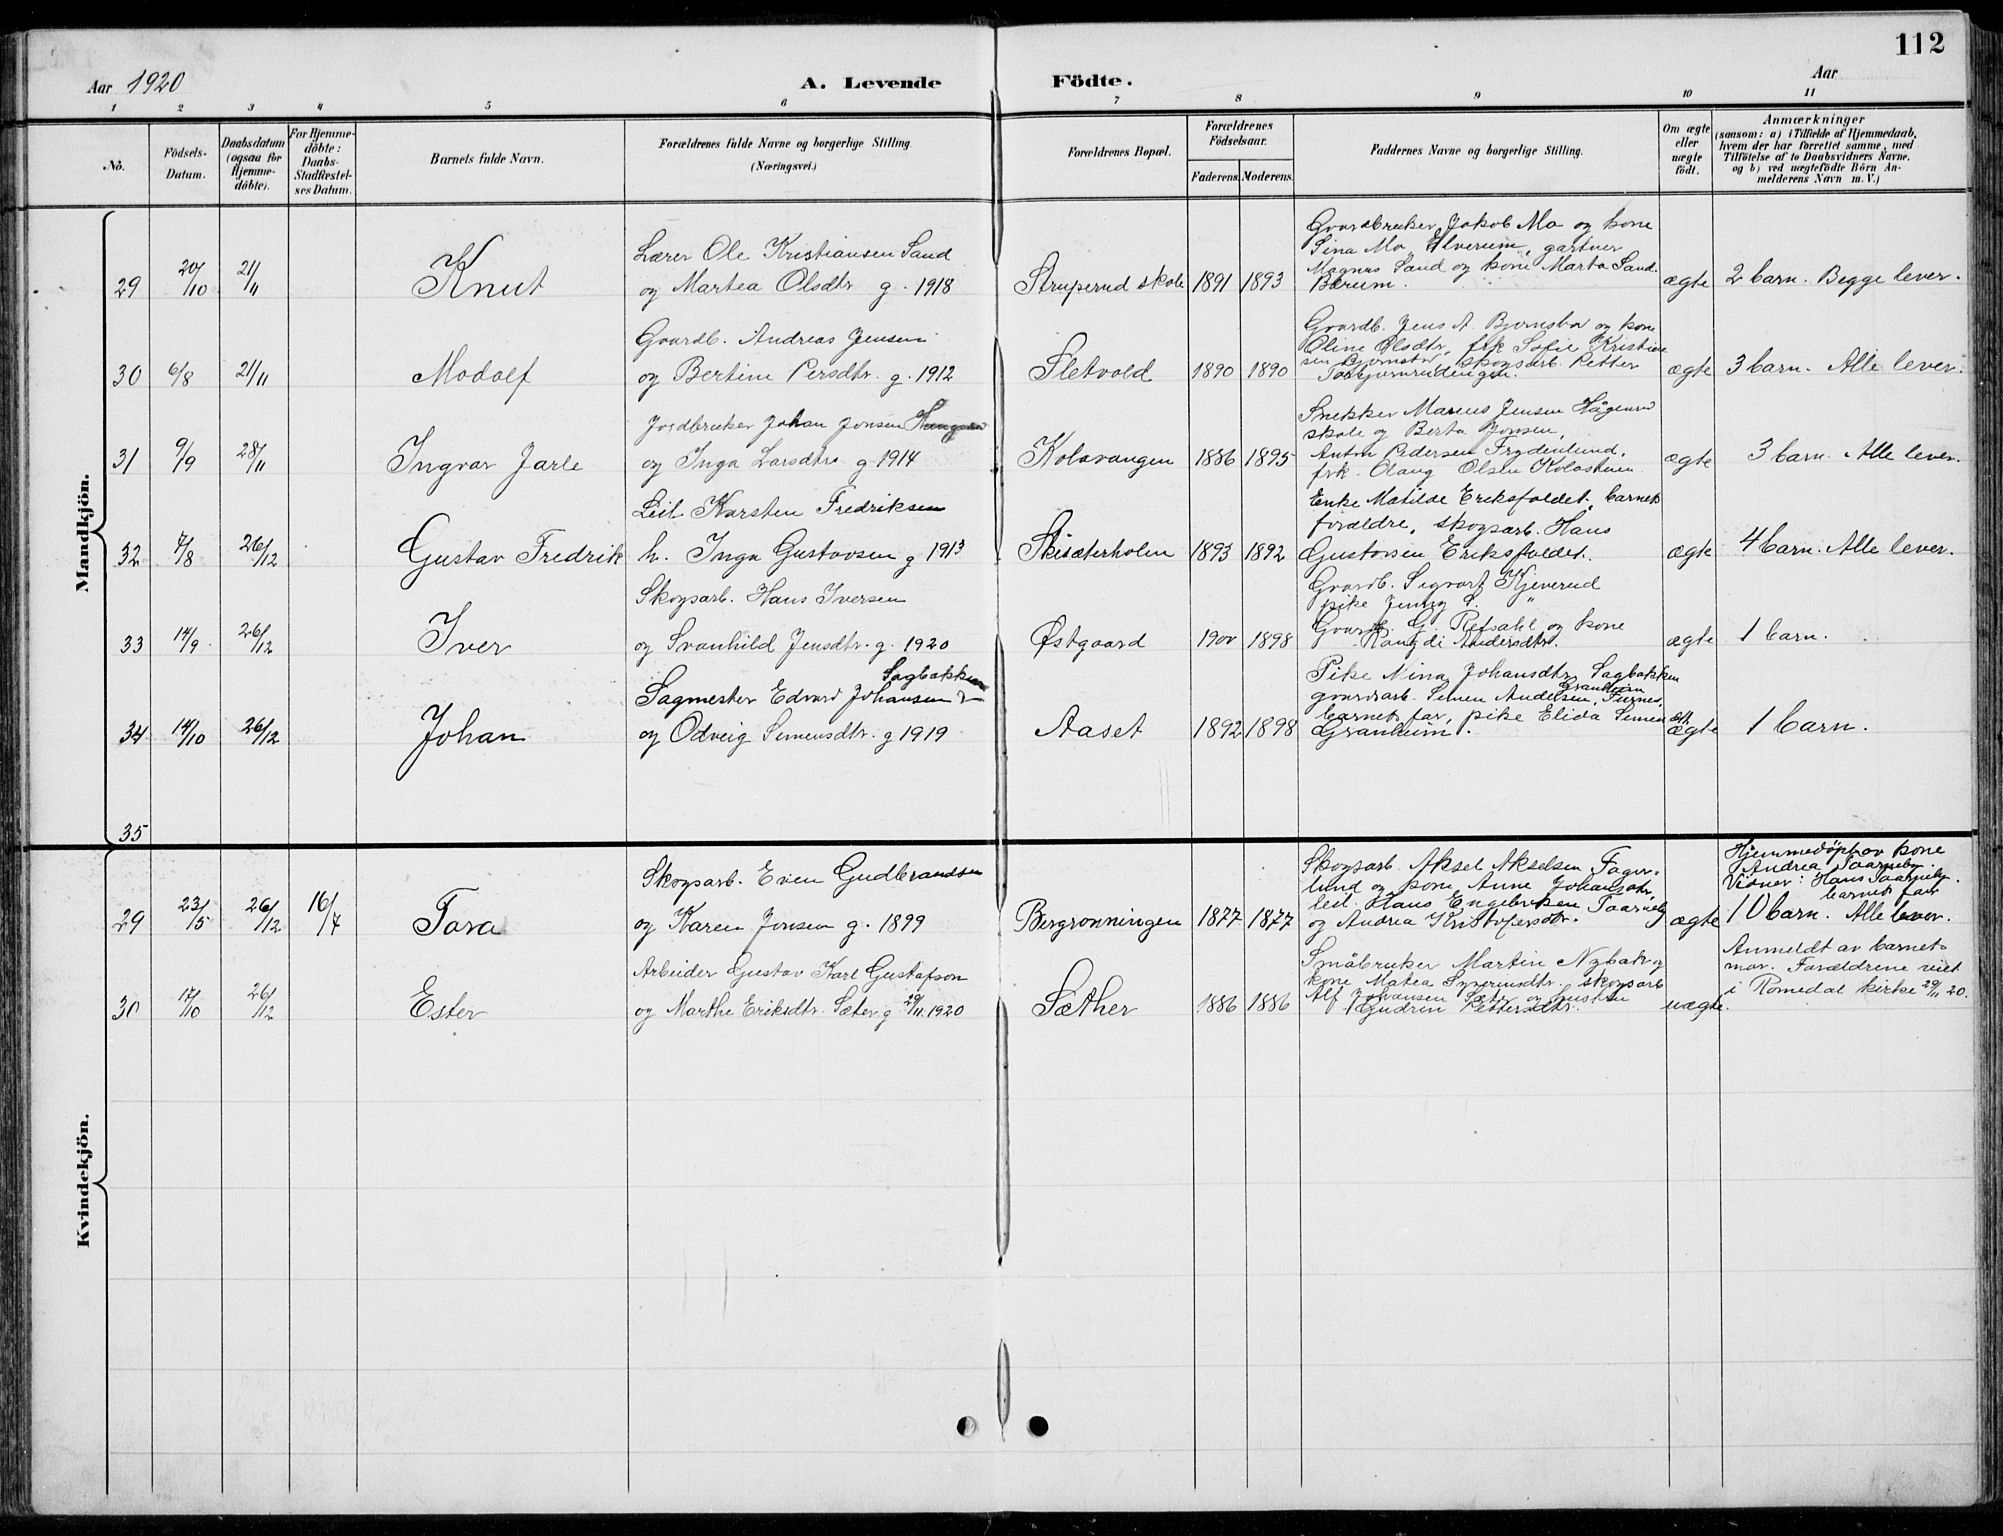 112
Aar 1920
A. Levende Födte.
Aar
1 2 3 4 5 6 7 8 9 10 11
No.
Födsels-Datum.
Daabsdatum (ogsaa för Hjemmedöbte).
For Hjemmedöbte: Daabs-Stadfæstelses Datum.
Barnets fulde Navn.
Forældrenes fulde Navne og borgerlige Stilling. (Næringsvei.)
Forældrenes Bopæl.
Forældrenes Födselsaar.
Faderens. Moderens.
Faddernes Navne og borgerlige Stilling.
Om ægte eller uægte födt.
Anmærkninger
(saasom: a) i Tilfælde af Hjemmedaab,
hvem der har forrettet samme, med
Tilföielse af to Daabsvidners Navne,
og b) ved uægtefödte Börn Anmelderens Navn m. V.)
Mandkjön.
29 20/10 21/11 Knut
Lærer Ole Kristiansen Sand
og Martea Olsdtr g. 1918
Struperud skole 1891 1893
Gaardbruker Jakob Mo og kone
Sina Mo, Elverum, gartner
Magnus Sand og kone Marta Sand.
Bærum.
ægte 2 barn. Begge lever.
30 6/8 21/11 Modolf
Gaardb. Andreas Jensen
og Bertine Persdtr. g. 1912
Sletvold 1890 1890
Gaardb. Jens A. Bjørnsbo og kone
Oline Olsdtr, frk Sofie Kristian
sen skogsarb. Petter
ægte 3 barn. Alle lever.
31 9/9 28/11 Ingvar Jarle
Jordbruker Johan Jonsen
og Inga Larsdtr g 1914
Kolavangen 1886 1895
Snekker Marius Jensen
skole og Berta Jonsen,
Anton Pedersen Frydenlund,
frk. Olaug Olsen
ægte 3 barn. Alle lever.
32 7/8 26/12 Gustav Fredrik
Leil. Karsten Fredriksen
h. Inga Gustavsen g 1913
Skisæterholen 1893 1892
Enke Matilde Eriksfaldet, barnets
forældre, skogsarb. Hans
Gustavsen Eriksfaldet.
ægte 4 barn. Alle lever.
33 14/9 26/12 Iver
Skogsarb. Hans Iversen
og Svanhild Jensdtr. g. 1920
Østgaard 1900 1898
Gaardb. Sigvart Kjeverud
pike Jenny S. "
Gaardb. G. Refsahl og kone
Rangdi Andersdtr.
ægte 1 barn.
34 14/10 26/12 Johan
Sagbakken
Sagmester Edvard Johansen
og Odveig Simensdtr. g 1919
Aaset 1892 1898
Pike Nina Johansdtr, Sagbakken
gaardsarb. Simen Andersen, Granheim Furnes,
barnets far, pike Elida Simensdtr.
Granheim.
ægte 1 barn.
35
Kvindekjön.
29 23/5 26/12 16/7 Tora
Skogsarb. Even Gudbrandsen
og Karen Jonsen g. 1899
Bergronningen 1877 1877
Skogsarb. Aksel Akselsen Fager-
lund og kone Anne Johansdtr,
leil. Hans Engebretsen Taarneby
og Andrea Kristofersdtr.
ægte
Hjemmedøpt av kone
Andrea Taarneby.
Vidner: Hans Taarneby.
barnets far
10 barn. Alle lever.
30 17/10 26/12 Ester
Arbeider Gustav Karl Gustafson
og Marthe Eriksdtr. Sæter g 29/11 1920
Sæther 1886 1886
Småbruker Martin Nybak og
kone Matea Syverinsdtr, skogsarb
Alf Johansen Sæter og hustru
Gudrun Pettersdtr.
uægte.
Anmeldt av barnets
mor. Forældrene viet
i Romedal kirke 29/11 20.